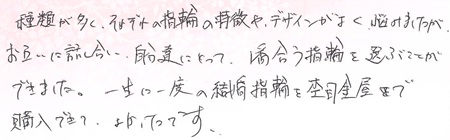 種類が多く、それぞれの指輪の特徴や、デザインがよく、悩みましたが、
お互いに話し合い、自分達にとって、似合う指輪を選ぶことが
できました。一生に一度の結婚指輪を杢目金屋まで
購入できて、よかったです。